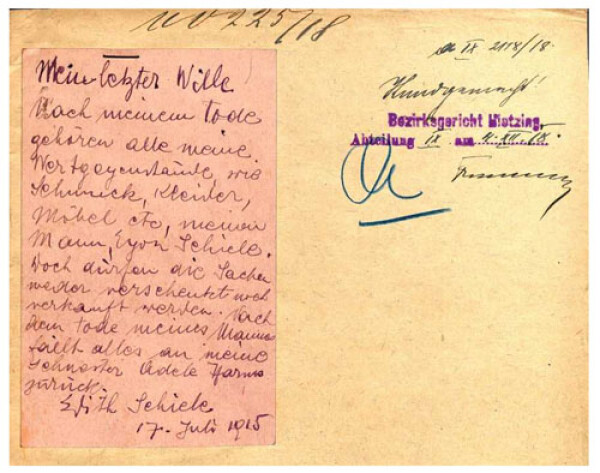 NO 225/18
Mein letzter Wille
Nach meinem Tode
gehören alle meine
Wertgegenstände wie
Schmuck, Kleider,
Möbel etc, meinem
Mann, Egon Schiele.
Doch dürfen die Sachen
weder verschenkt noch
verkauft werden. Nach
dem Tode meines Mannes
fällt alles an meine
Schwester Adele Harms
zurück.
Edith Schiele
17. Juli 1915
IX 2118/18.
Kundgemacht!
Bezirksgericht Hietzing,
Abteilung IX am 4. XII. 18.